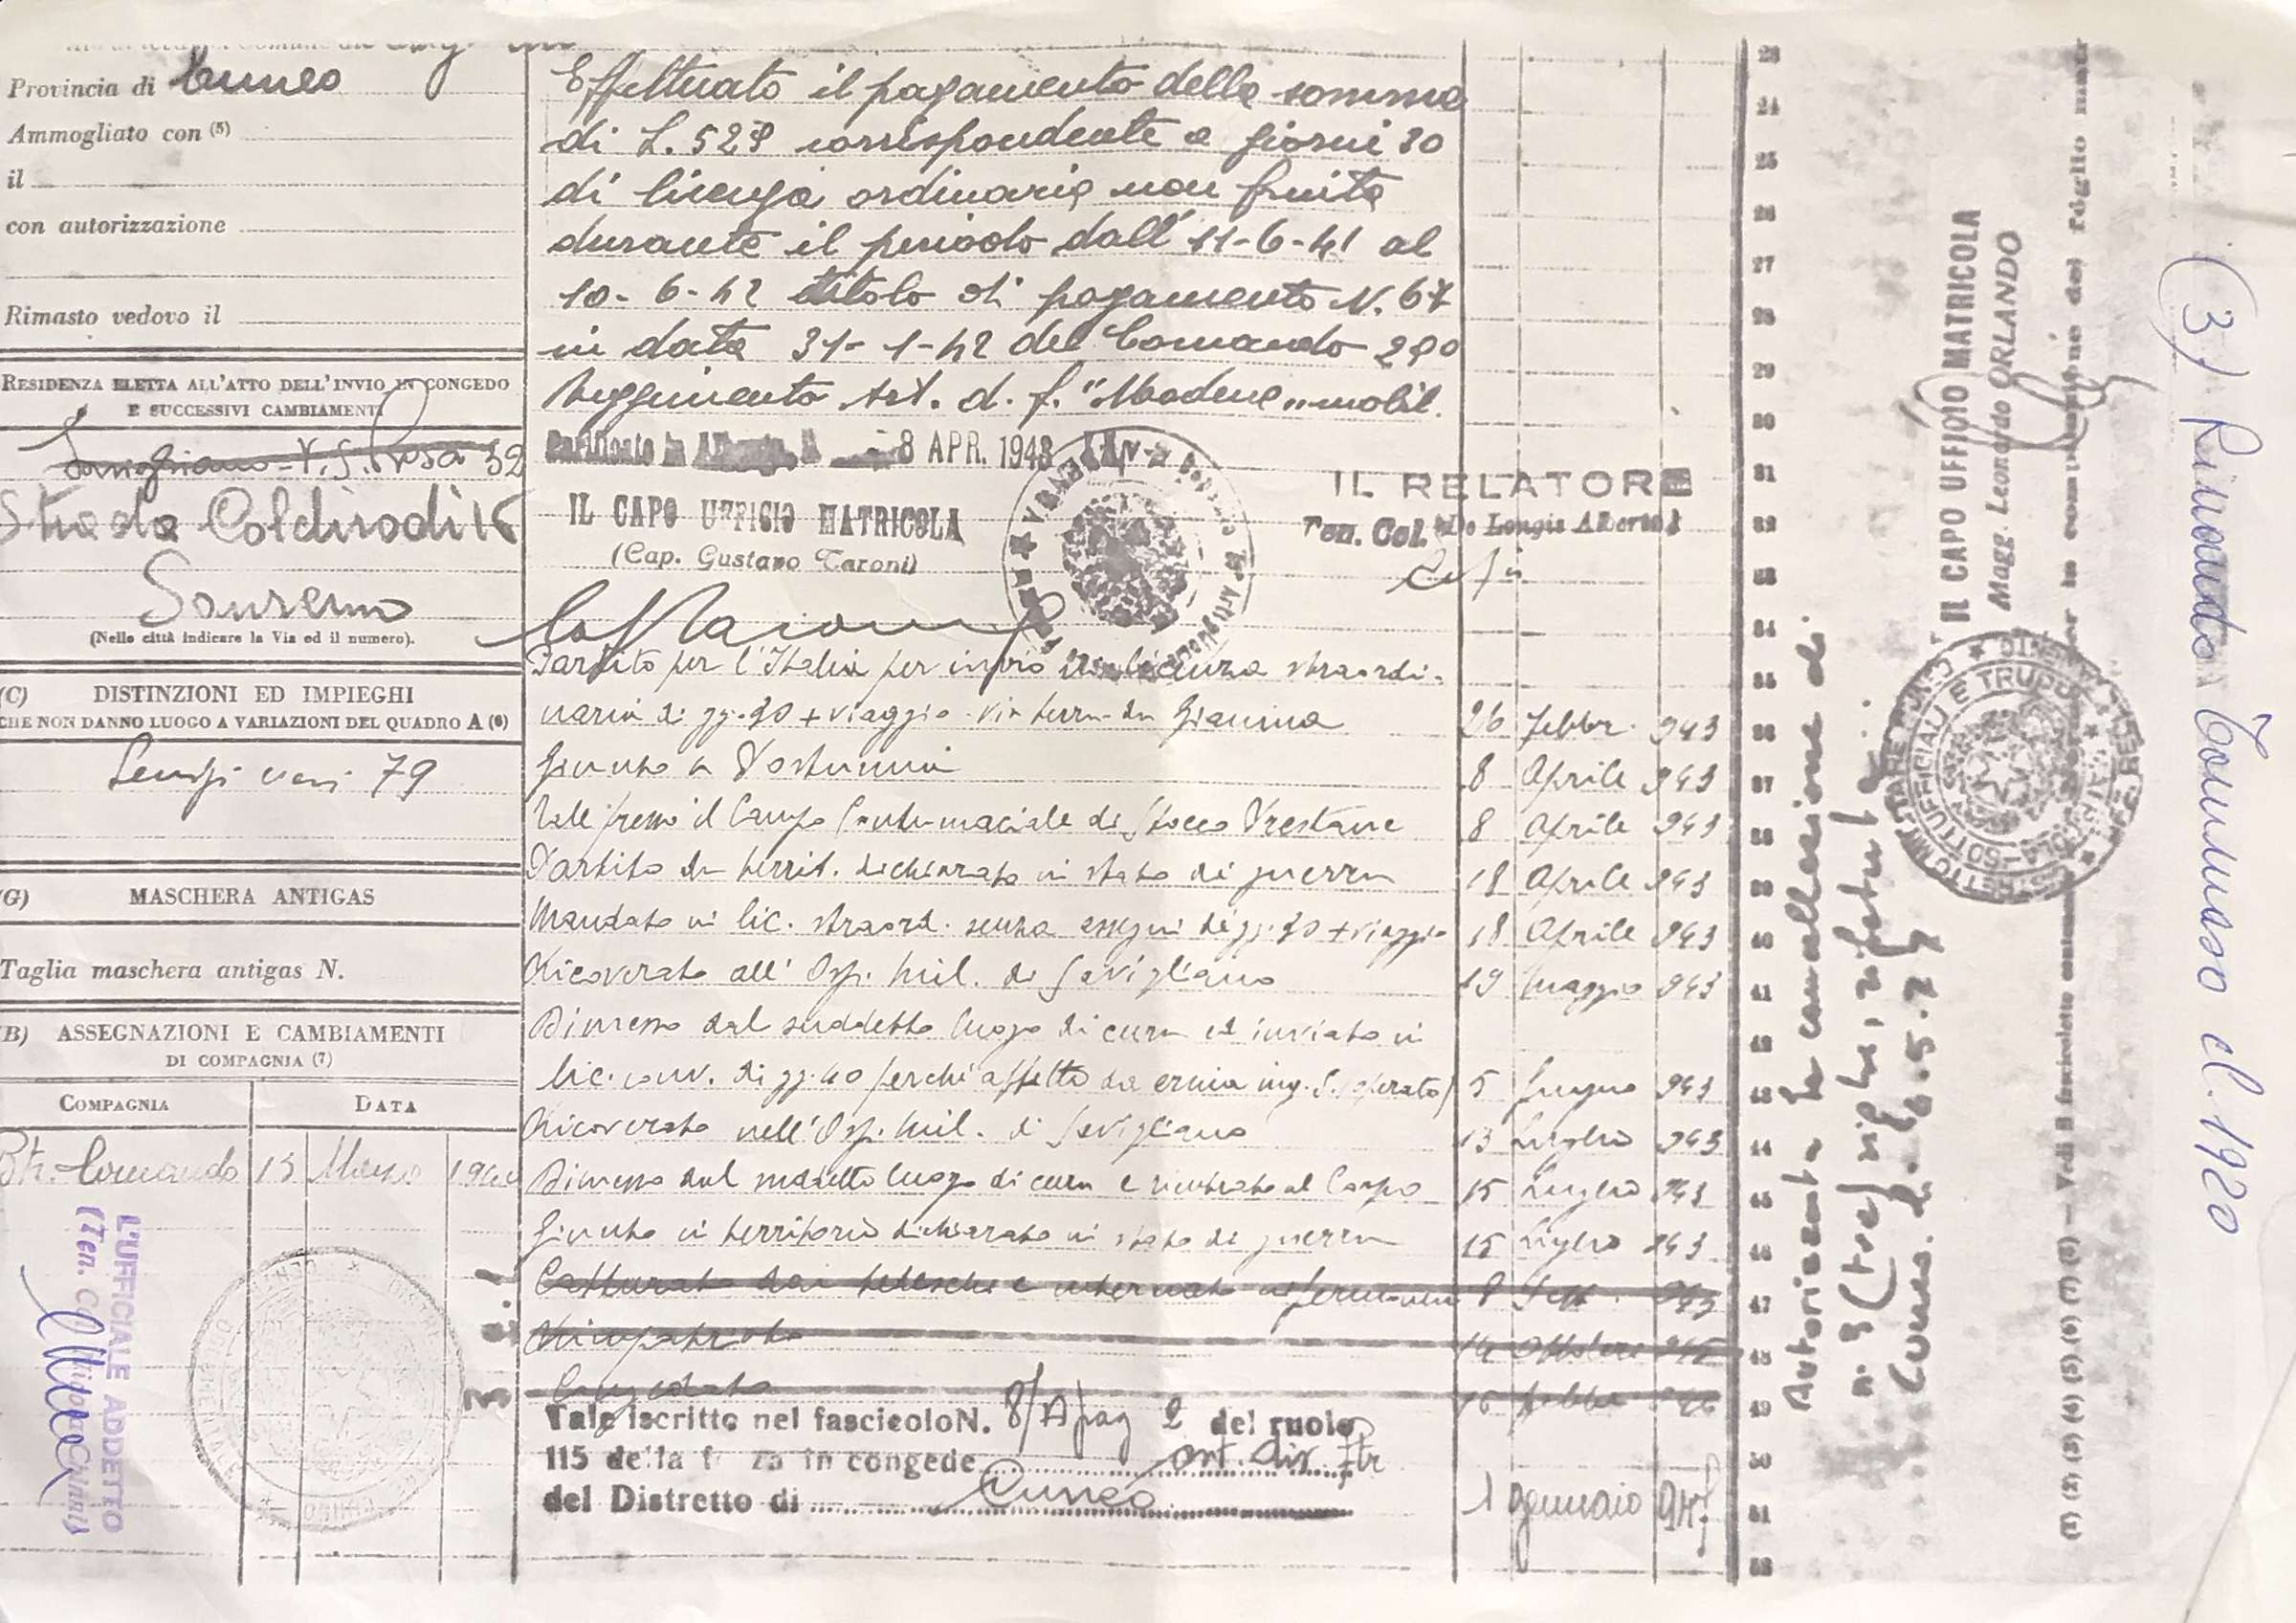 Provincia di Cuneo
Ammogliato con (5)
il
con autorizzazione
Rimasto vedovo il
RESIDENZA ELETTA ALL'ATTO DELL'INVIO IN CONGEDO
E SUCCESSIVI CAMBIAMENTI
Savigliano - V. S. Rosa 52
Strada Coldirodi 15
Sanremo
(Nelle città indicare la Via ed il numero).
(C) DISTINZIONI ED IMPIEGHI
CHE NON DANNO LUOGO A VARIAZIONI DEL QUADRO A (6)
79
(G) MASCHERA ANTIGAS
Taglia maschera antigas N.
(B) ASSEGNAZIONI E CAMBIAMENTI
DI COMPAGNIA (7)
COMPAGNIA DATA
Btr. Comando 13 Marzo 1940
L'UFFICIALE ADDETTO
(Ten.
Effettuato il pagamento della somma
di L. 528 corrispondente a giorni 30
di licenza ordinaria non fruita
durante il periodo dall' 11-6-41 al
10-6-42 titolo di pagamento N. 67
in data 31-1-42 del Comando 29°
Reggimento Art. d. f. "Modena" mobil.
8 APR. 1943
IL CAPO UFFICIO MATRICOLA
(Cap. Gustavo Taroni)
IL RELATORE
Ten. Col. De Longis Alberto
Partito per l'Italia per invio in licenza straordi-
naria di gg. 30 + viaggio via terra da Giannina 26 Febbr. 943
Giunto a Postumia 8 Aprile 943
Tale presso il Campo Contumaciale di Prestane 8 Aprile 943
Partito da territ. dichiarato in stato di guerra 18 Aprile 943
Mandato in lic. straord. senza assegni di gg. 30 + viaggio 18 Aprile 943
Ricoverato all' Osp. Mil. di Savigliano 19 Maggio 943
Dimesso dal suddetto luogo di cura ed inviato in
lic. conv. di gg. 40 perché affetto da ernia ing. S. (operato) 5 Giugno 943
Ricoverato nell'Osp. Mil. di Savigliano 13 Luglio 943
Dimesso dal suddetto luogo di cura e rientrato al Corpo 15 Luglio 943
Giunto in territorio dichiarato in stato di guerra 15 Luglio 943
Catturato dai tedeschi e internato in Germania 8 Sett. 943
Rimpatriato 14 Ottobre 945
Congedato
Tale iscritto nel fascicolo N. 8/A pag 2 del ruolo
115 della f za in congedo
del Distretto di Cuneo 1 gennaio
23
24
25
26
27
28
29
30
31
32
33
34
35
36
37
38
39
40
41
42
43
44
45
46
47
48
49
50
51
52
Autorizzata la cancellazione di
n. 3 (tre) righe,
Cuneo,
IL CAPO UFFICIO MATRICOLA
Magg. Leonardo ORLANDO
(1) (2) (3) (4) (5) (6) (7) (8) — Vedi il fascicoletto
3) Rinaudo Tommaso cl. 1920